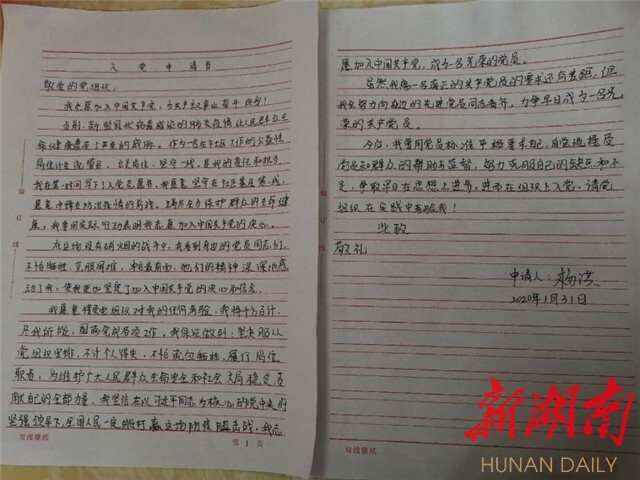 入党申请书
敬爱的党组织:
我志愿加入中国共产党,为共产主义事业奋斗终身!
当前,新型冠状病毒感染的肺炎疫情让人民群众生
命健康遭受了严重的威胁。作为一名在社区工作的公益性
岗位计生协管员,立足岗位、坚守一线,是我的责任和担当。
我在第一时间写下了入党志愿书,我愿意坚守在社区基层第一线,
愿意冲锋在防治疫情的前线,竭尽全力保护群众的生命健
康。我要用实际行动表明我志愿加入中国共产党的决心。
在这场没有硝烟的战斗中,我看到身边的党员同志们,
不怕牺牲、克服困难,冲在最前面,他们的精神深深地感
动了我,使我更加坚定了加入中国共产党的决心和信念。
我愿意接受党组织对我的任何考验,我将千方百计,
尽我所能,圆满完成各项工作。我保证做到:坚决服从
党组织安排,不计个人得失,不怕流血牺牲,履行岗位
职责,为维护广大人民群众生命安全和社会大局稳定,贡
献自己的全部力量。我坚信在以习近平同志为核心的党中央的
坚强领导下,全国人民一定能打赢这场防疫阻击战,我志
双线稿纸
第1页
装
订
线
愿加入中国共产党,成为一名光荣的党员。
虽然我离一名真正的共产党员的要求还有差距,但
我会努力向身边的先进党员同志看齐,力争早日成为一名光
荣的共产党员。
今后,我要用党员标准严格要求自己,自觉地接受
党员和群众的帮助与监督,努力克服自己的缺点和不
足,争取早日在思想上进步,进而在组织上入党。请党
组织在实践中考验我!
此致
敬礼
申请人:杨洪
2020年1月31日
双线稿纸
新湖南
HUNAN DAILY